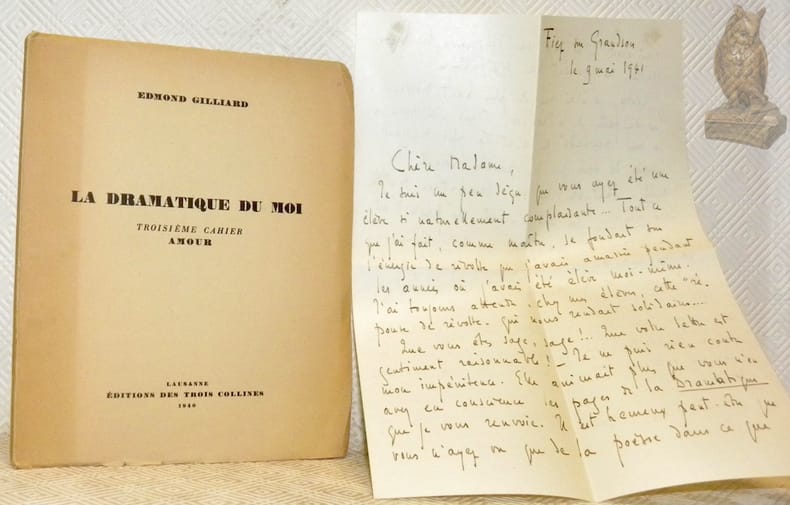 EDMOND GILLIARD
LA DRAMATIQUE DU MOI
TROISIÈME CAHIER
AMOUR
LAUSANNE
ÉDITIONS DES TROIS COLLINES
1940
Fiez sur Grandson
le 9 mai 1941
Chère Madame,
Je suis un peu déçu que vous ayez été une
élève si naturellement complaisante... Tout ce
que j'ai fait, comme maître, se fondait sur
l'énergie de révolte que j'avais amassée pendant
les années où j'avais été élève moi-même.
J'ai toujours attendu, chez mes élèves, cette "ré-
ponse de révolte" qui nous rendait solidaires...
Que vous êtes sage, sage!.. Que votre lettre est
gentiment raisonnable! - Je ne puis rien contre
mon impénitence. Elle animait plus que vous n'en
avez eu conscience les pages de la Dramatique
que je vous renvoie. Il est heureux peut-être que
vous n'ayez vu que de la poésie dans ce que